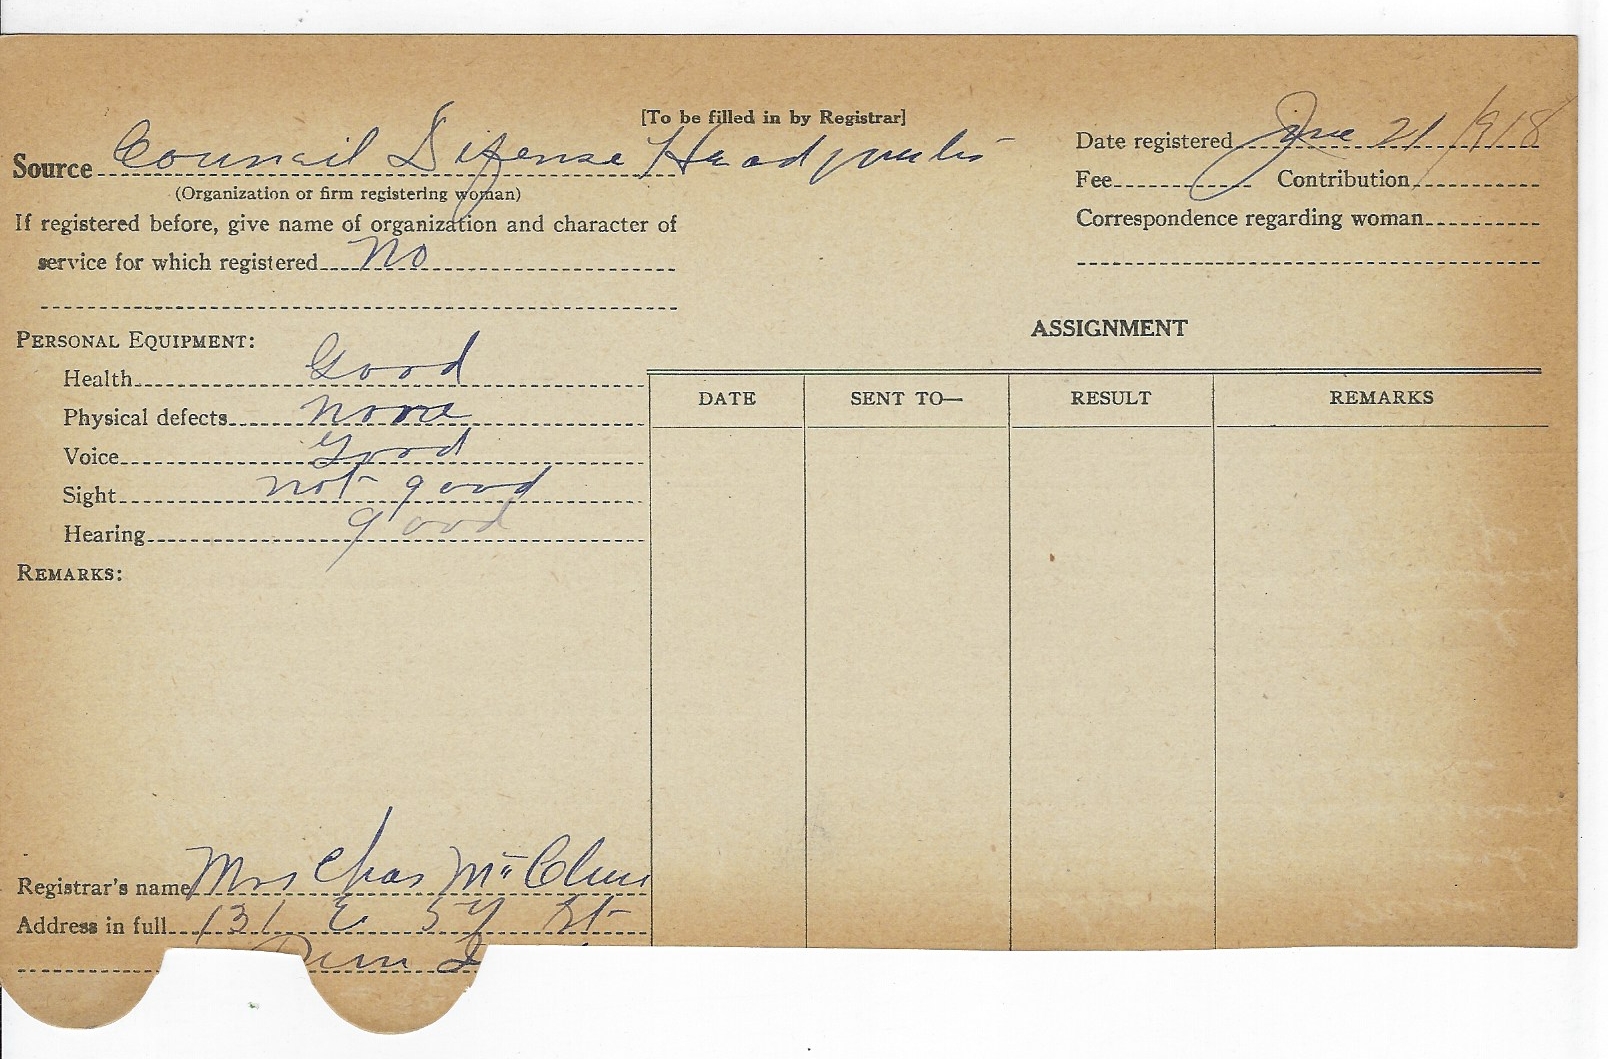 [To be filled in by Registrar]
Source Council Defense Headquarters
(Organization or firm registering woman)
Date registered June 21 1918
Fee Contribution
Correspondence regarding woman
If registered before, give name of organization and character of
service for which registered No
PERSONAL EQUIPMENT:
Health Good
Physical defects none
Voice Good
Sight not good
Hearing good
REMARKS:
ASSIGNMENT
DATE SENT TO— RESULT REMARKS
Registrar's name Mrs Chas Mc
Address in full 131 E 5 St